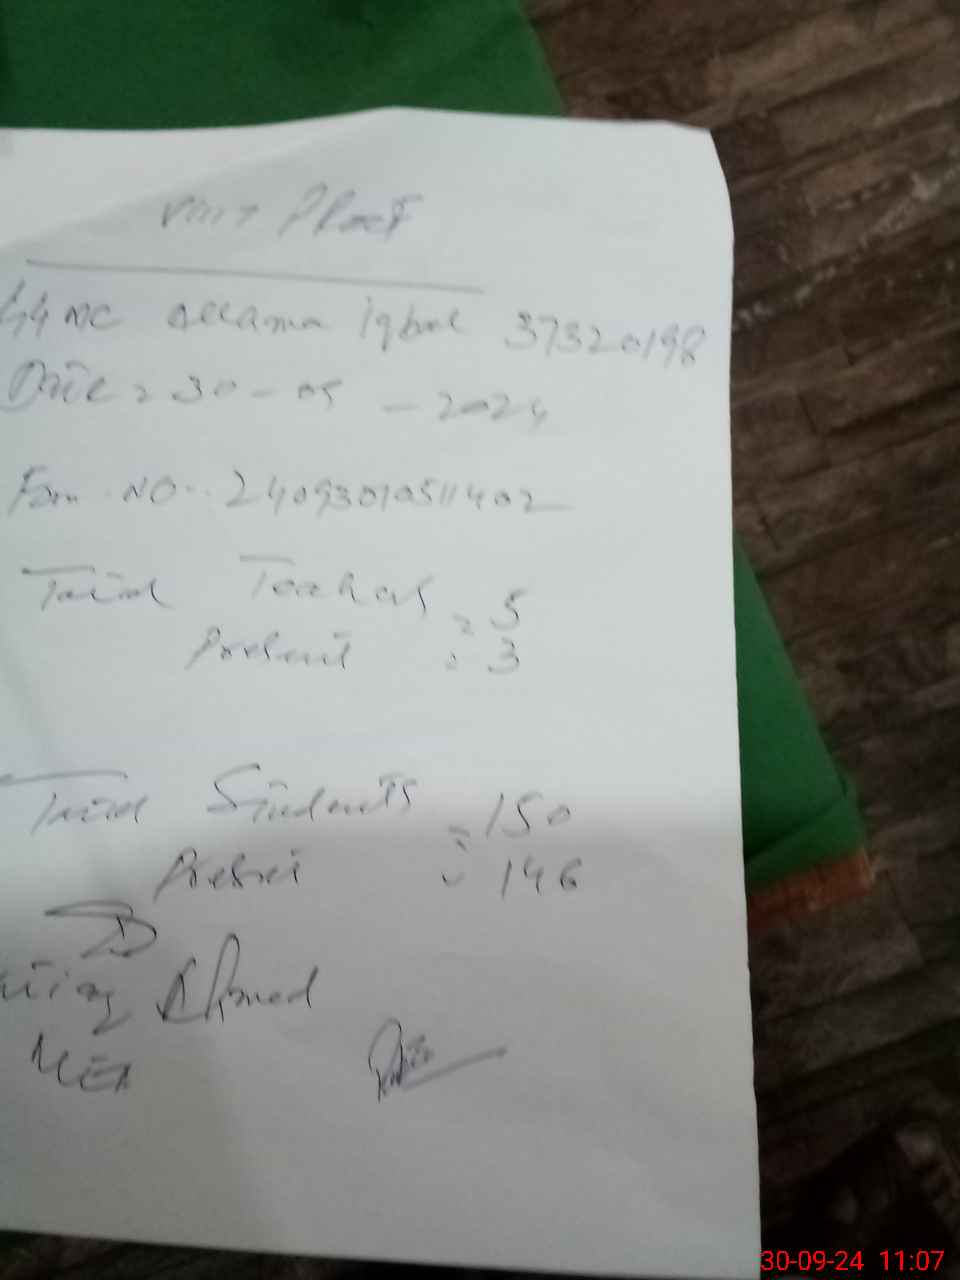 Visit Proof
Allama Iqbal 37320198
Date = 30-05-2024
Form NO. 24093010511402
Total Teachers = 5
Present = 3
Total Students = 150
Present = 146
Ahmed
MEA
30-09-24 11:07